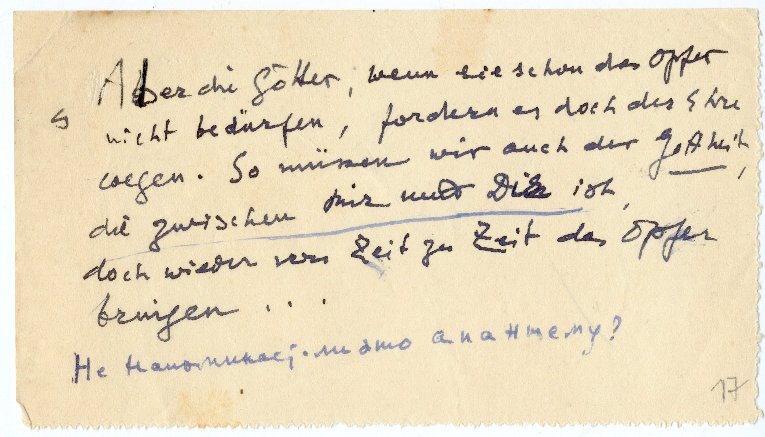 Aber die Götter, wenn sie schon das Opfer
nicht bedürfen, fordern es doch der Ehre
wegen. So müssen wir auch der Gottheit,
die zwischen mir und Dir ist,
doch wieder von Zeit zu Zeit das Opfer
bringen ...
Не
17